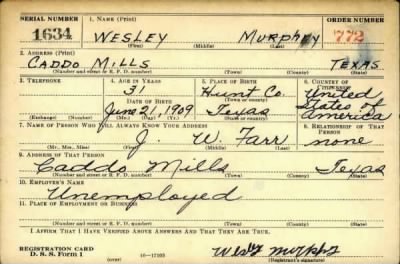 SERIAL NUMBER 1. NAME (Print) ORDER NUMBER
1634 WESLEY MURPHEY 772
(First) (Middle) (Last)
2. ADDRESS (Print)
CADDO MILLS TEXAS
(Number and street or R. F. D. number) (Town) (County) (State)
3. TELEPHONE 4. AGE IN YEARS 5. PLACE OF BIRTH 6. COUNTRY OF CITIZENSHIP
31 Hunt Co. United
(Town or county)
DATE OF BIRTH States of
June 21, 1909 Texas America
(Exchange) (Number) (Mo.) (Day) (Yr.) (State or country)
7. NAME OF PERSON WHO WILL ALWAYS KNOW YOUR ADDRESS 8. RELATIONSHIP OF THAT PERSON
J. W. Farr none
(Mr., Mrs., Miss) (First) (Middle) (Last)
9. ADDRESS OF THAT PERSON
Caddo Mills Texas
(Number and street or R. F. D. number) (Town) (County) (State)
10. EMPLOYER'S NAME
Unemployed
11. PLACE OF EMPLOYMENT OR BUSINESS
(Number and street or R. F. D. number) (Town) (County) (State)
I AFFIRM THAT I HAVE VERIFIED ABOVE ANSWERS AND THAT THEY ARE TRUE.
REGISTRATION CARD
D. S. S. Form 1 (over) 16—17105 (Registrant's signature)